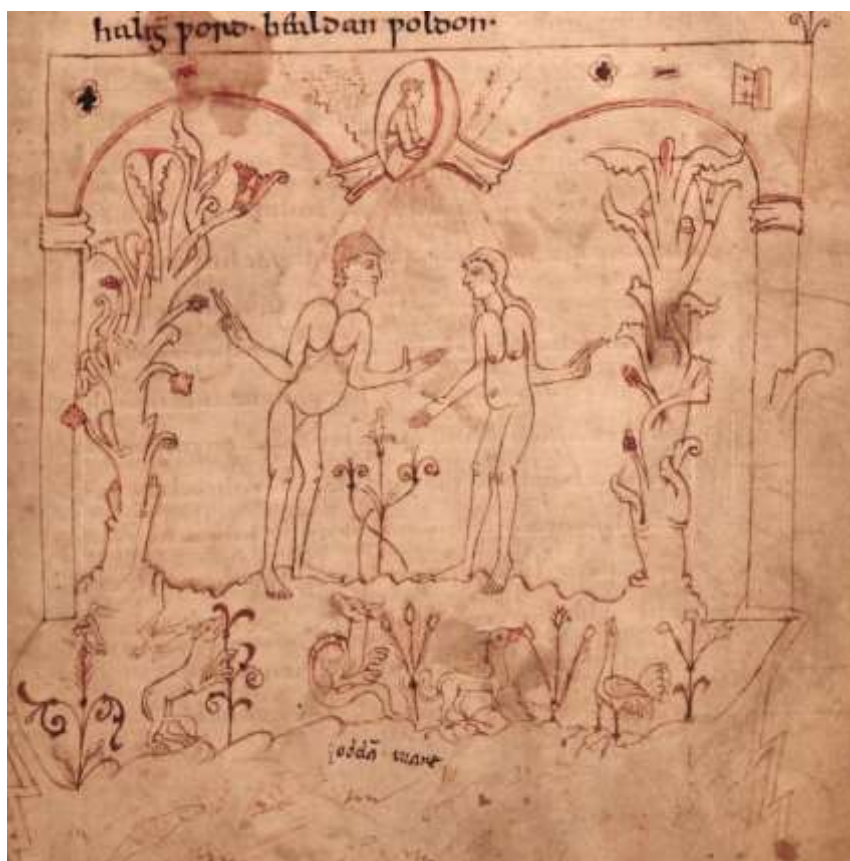 halig ƿord· healdan ƿoldon·
mare